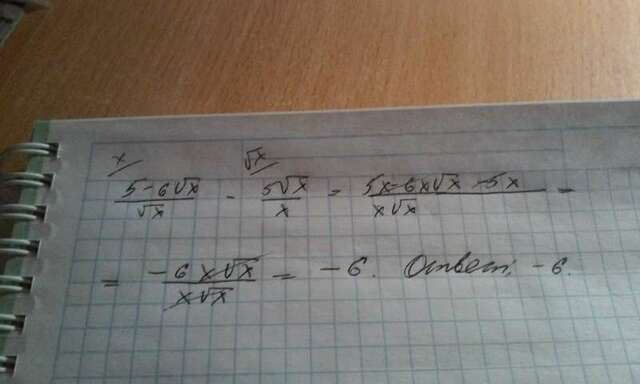 x/ √x/
(5-6√x)/√x - 5√x/x = (5x-6x√x-5x)/(x√x) =
= (-6x√x)/(x√x) = -6. Ответ: -6.